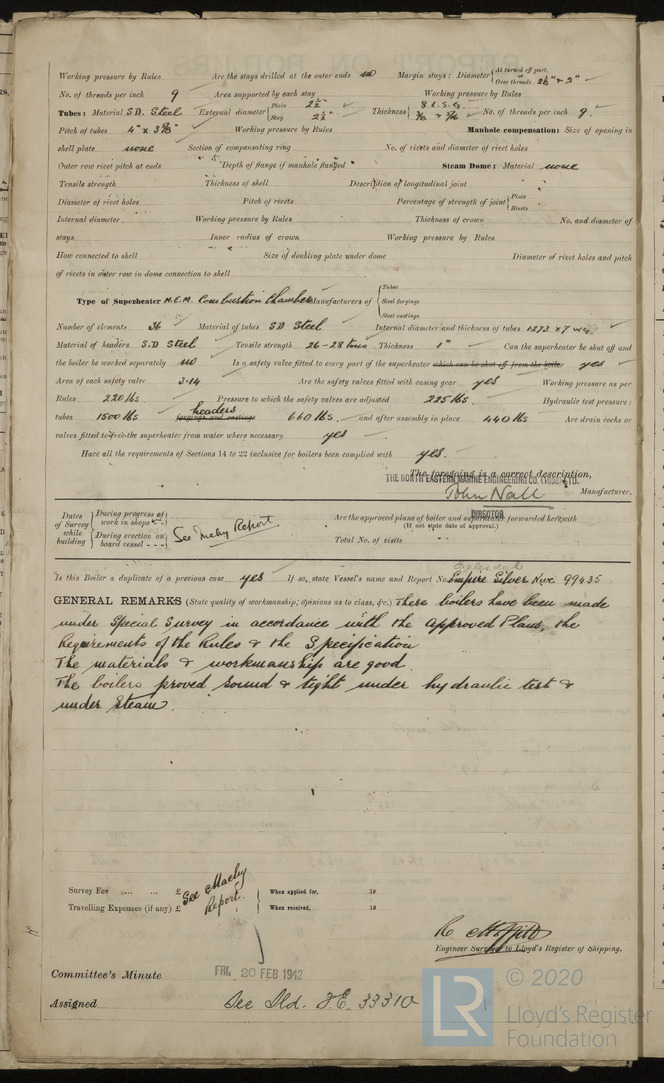 Working pressure by Rules Are the stays drilled at the outer ends no Margin stays: Diameter { At turned off part, or Over threads 2⅛" & 2"
No. of threads per inch 9 Area supported by each stay Working pressure by Rules
Tubes: Material S.D. Steel External diameter { Plain 2½" Stay 2½" Thickness { 8 L.S.G. No. of threads per inch 9.
Pitch of tubes 4" x 3⅞" Working pressure by Rules Manhole compensation: Size of opening in
shell plate none Section of compensating ring No. of rivets and diameter of rivet holes
Outer row rivet pitch at ends Depth of flange if manhole flanged Steam Dome: Material none
Tensile strength Thickness of shell Description of longitudinal joint
Diameter of rivet holes Pitch of rivets Percentage of strength of joint { Plate Rivets
Internal diameter Working pressure by Rules Thickness of crown No. and diameter of
stays Inner radius of crown Working pressure by Rules
How connected to shell Size of doubling plate under dome Diameter of rivet holes and pitch
of rivets in outer row in dome connection to shell
Type of Superheater N.E.M. Combustion Chamber Manufacturers of { Tubes Steel forgings Steel castings
Number of elements 36 Material of tubes SD Steel Internal diameter and thickness of tubes 1.273 x 7 W.G.
Material of headers S.D Steel Tensile strength 26-28 tons Thickness 1" Can the superheater be shut off and
the boiler be worked separately no Is a safety valve fitted to every part of the superheater which can be shut off from the boiler yes
Area of each safety valve 3.14 Are the safety valves fitted with easing gear yes Working pressure as per
Rules 220 lbs. Pressure to which the safety valves are adjusted 225 lbs. Hydraulic test pressure:
tubes 1500 lbs forgings and castings headers 660 lbs. and after assembly in place 440 lbs Are drain cocks or
valves fitted to free the superheater from water where necessary yes
Have all the requirements of Sections 14 to 22 inclusive for boilers been complied with yes.
The foregoing is a correct description,
THE NORTH EASTERN MARINE ENGINEERING CO. (1938) LTD.
John Nall Manufacturer.
DIRECTOR
Dates of Survey while building { During progress of work in shops - - During erection on board vessel - - - See Mchy Report
Are the approved plans of boiler and superheater forwarded herewith
(If not state date of approval.)
Total No. of visits
Is this Boiler a duplicate of a previous case yes If so, state Vessel's name and Report No. Empire Silver Nwc 99435
GENERAL REMARKS (State quality of workmanship, opinions as to class, &c.) These boilers have been made
under Special Survey in accordance with the approved Plans, the
Requirements of the Rules & the Specification
The materials & workmanship are good.
The boilers proved sound & tight under hydraulic test &
under Steam.
Survey Fee ... ... £ See Machy Report. When applied for, 19
Travelling Expenses (if any) £ When received, 19
Engineer Surveyor to Lloyd's Register of Shipping.
Committee's Minute FRI. 20 FEB 1942
Assigned See Sld. F.E. 33310
LR © 2020
Lloyd's Register
Foundation